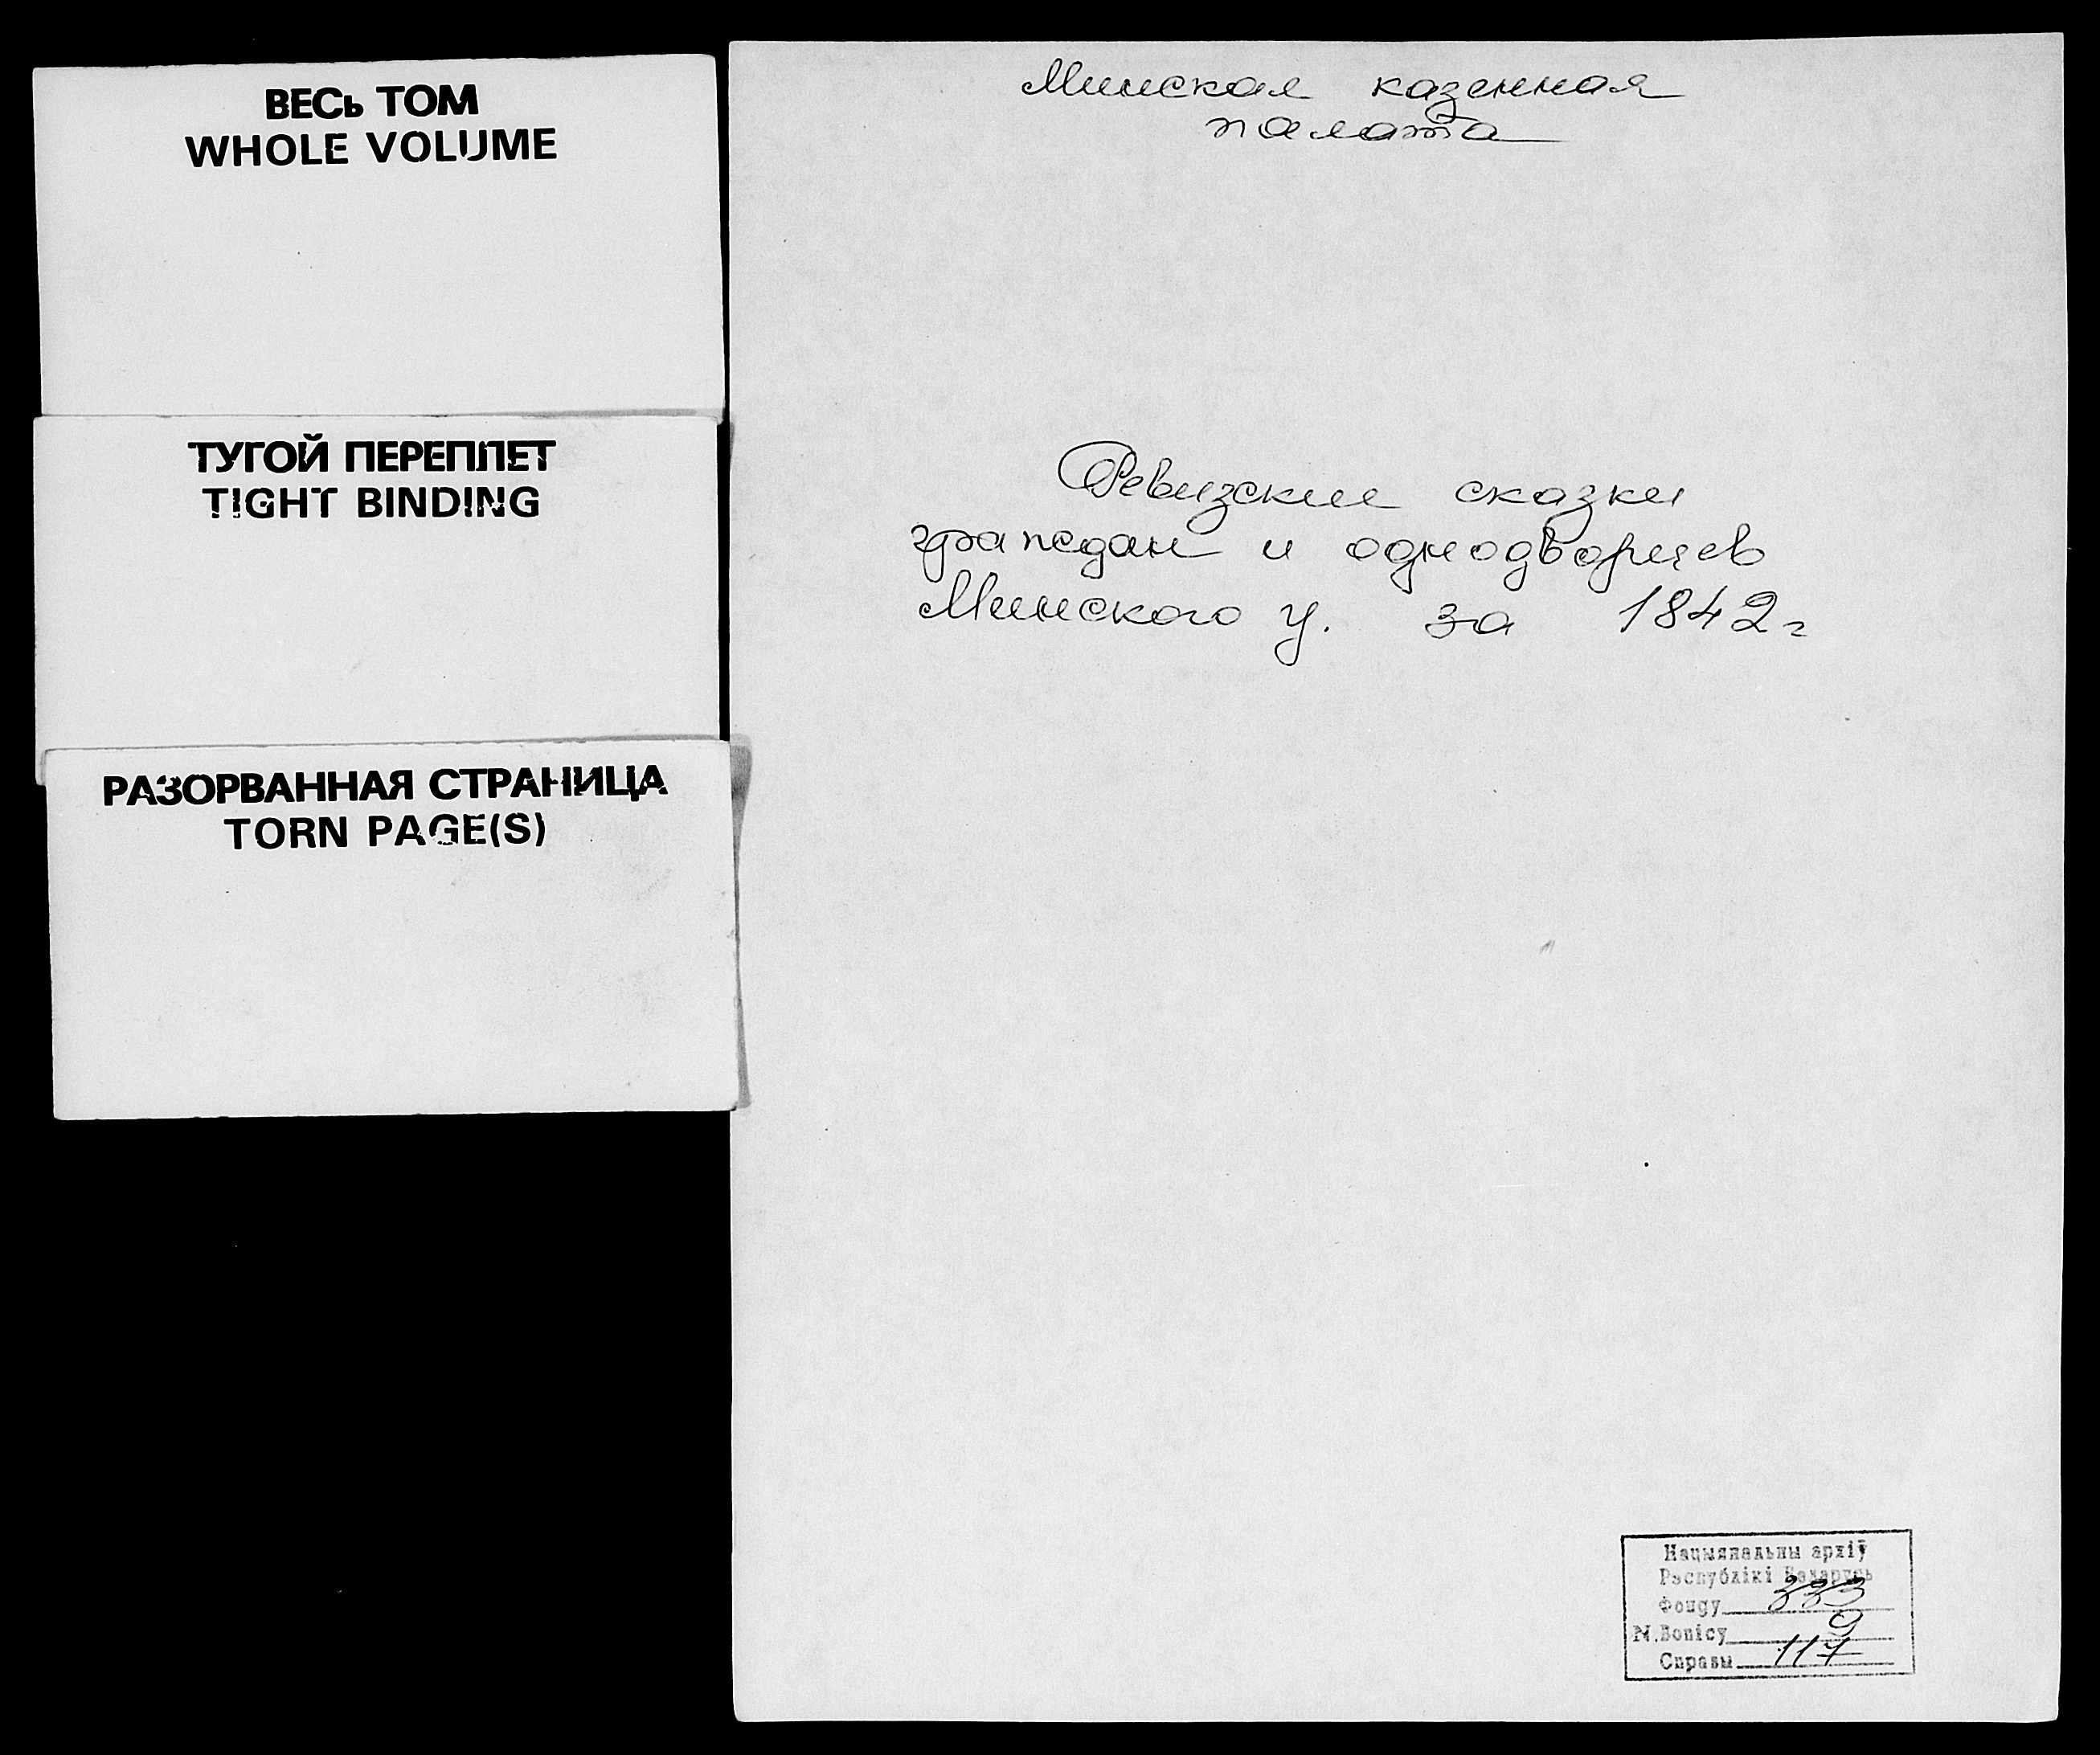 ВЕСЬ ТОМ
WHOLE VOLUME
ТУГОЙ ПЕРЕПЛЕТ
TIGHT BINDING
РАЗОРВАННАЯ СТРАНИЦА
TORN PAGE(S)
Минская казенная
палата
Ревизские сказки
граждан и однодворцев
Минского у. за 1842 г
Нацыянальны архіў
Рэспублікі Беларусь
Фонду 333
N. Вопісу 9
Справы 117